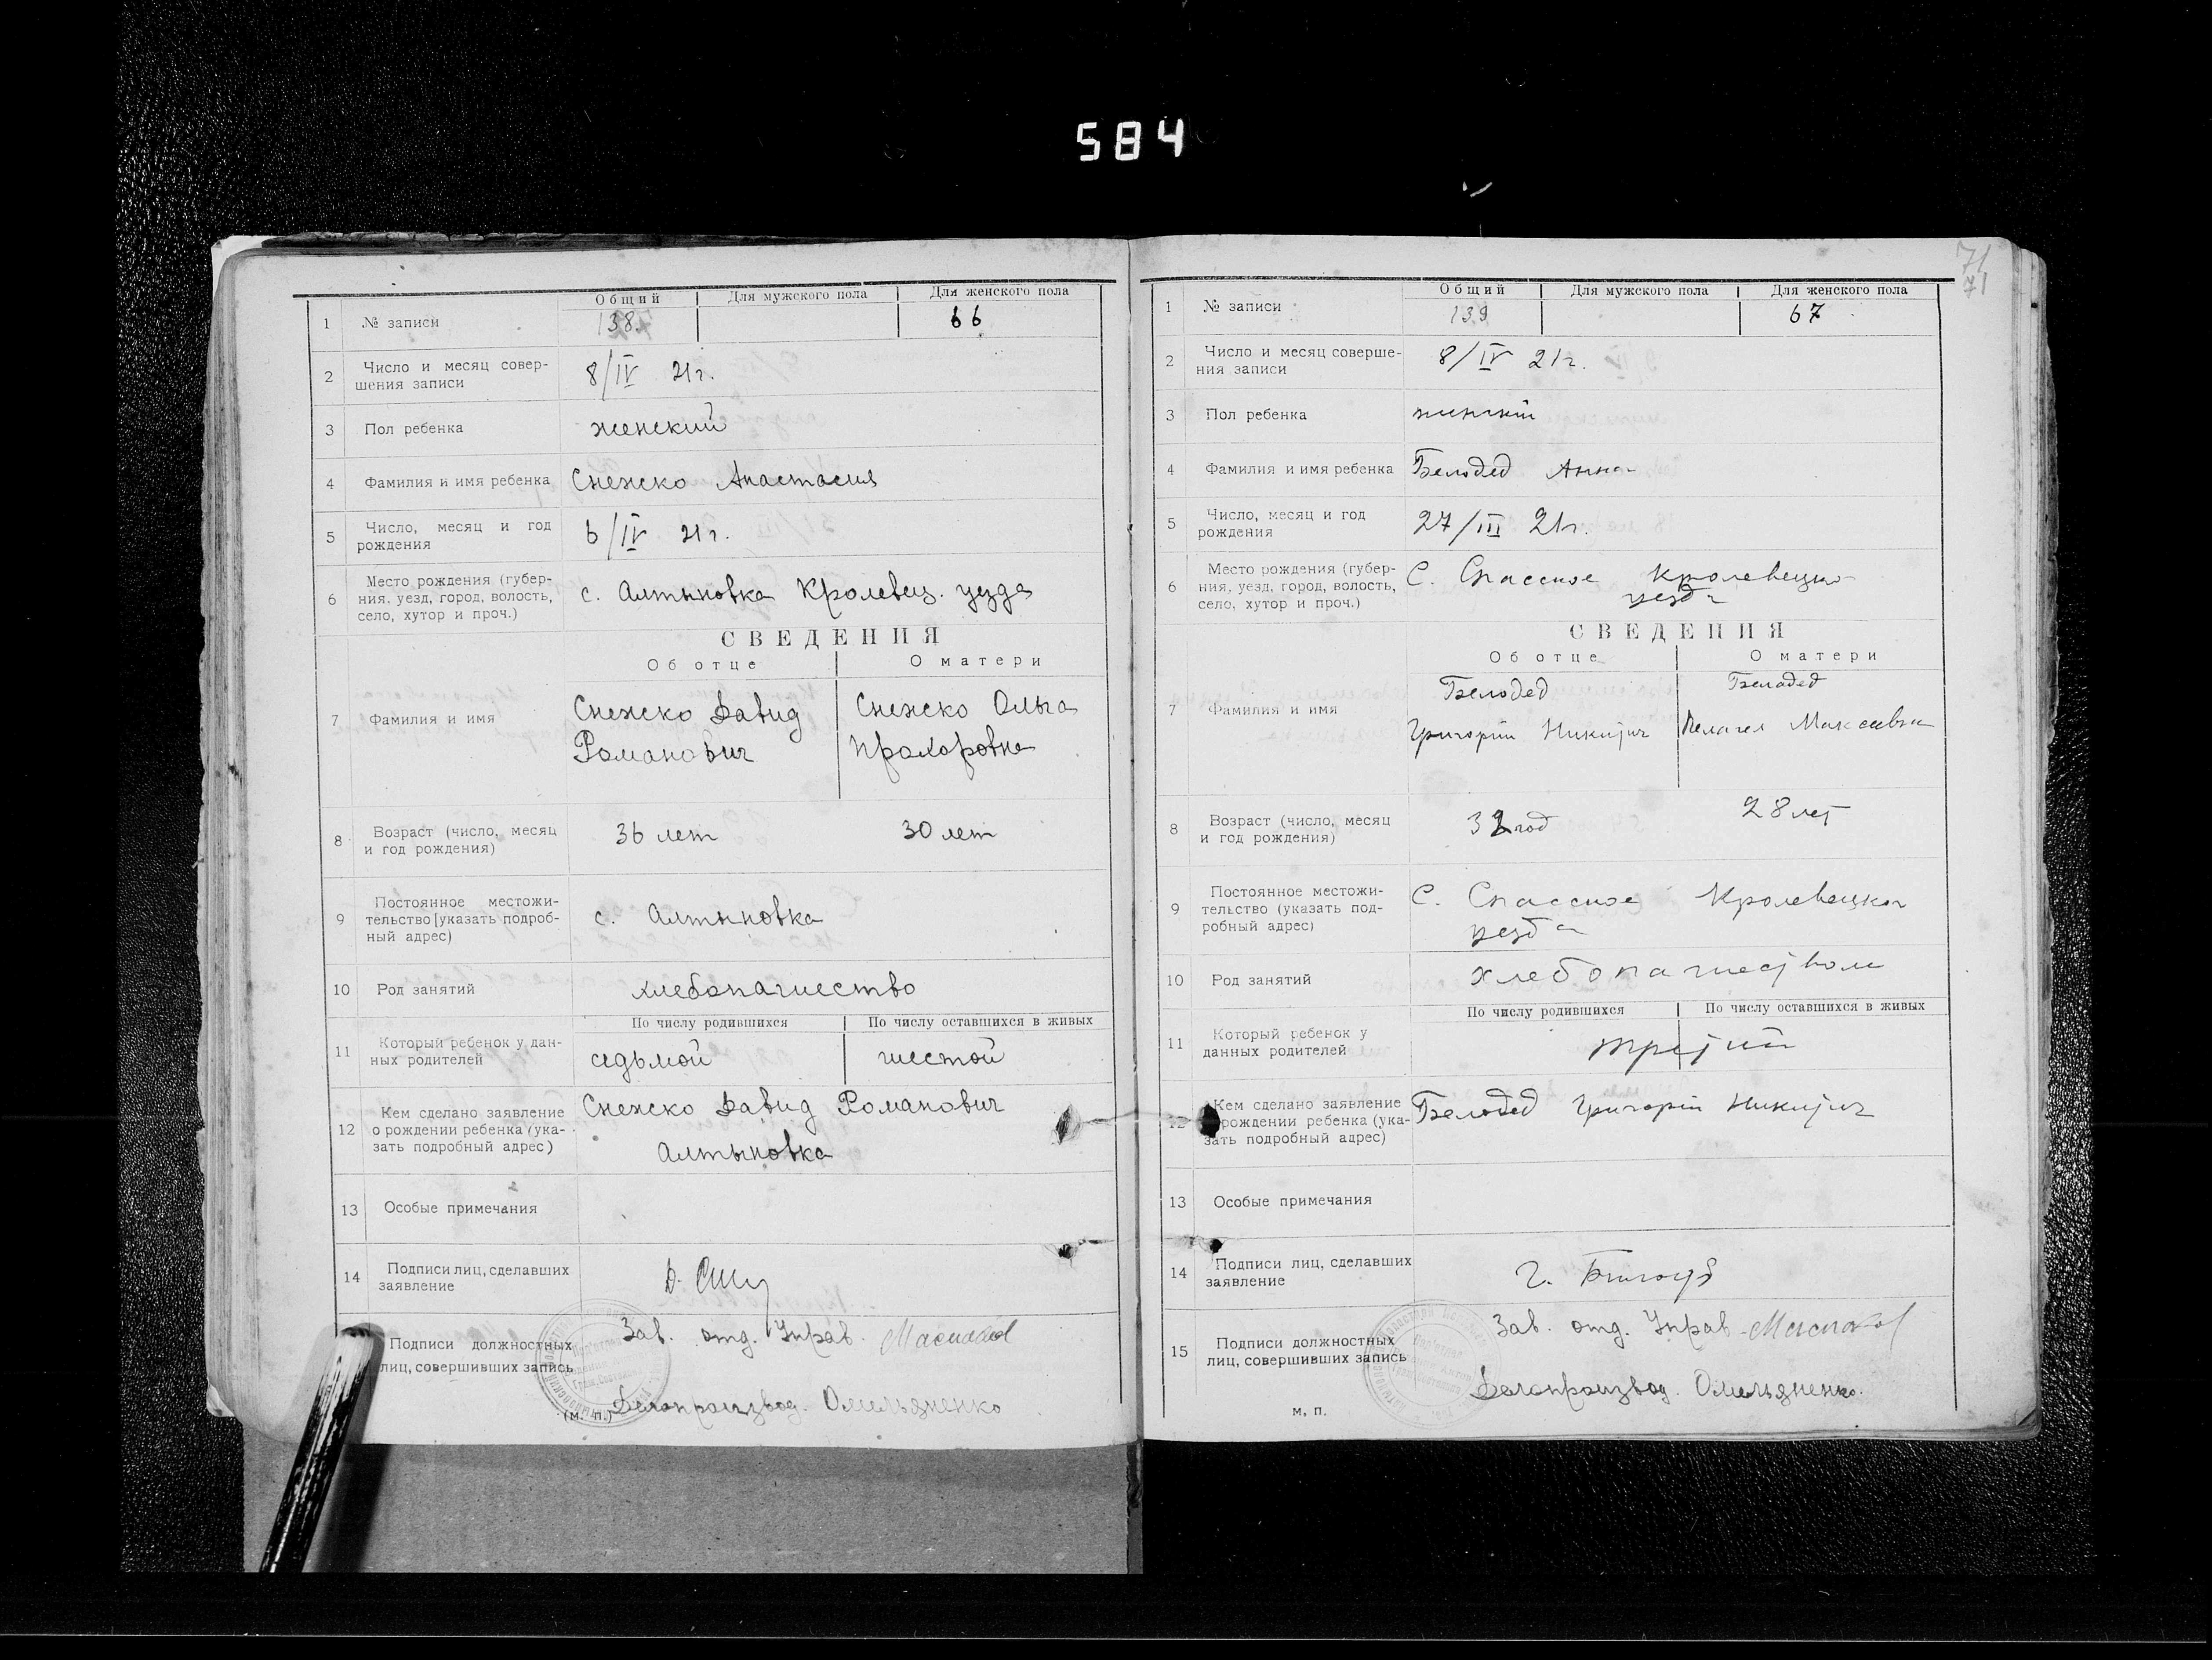 584
71
71
Общий Для мужского пола Для женского пола
1 № записи 138. 66
2 Число и месяц совер-
шения записи 8/IV 21г.
3 Пол ребенка женский
4 Фамилия и имя ребенка Снежко Анастасия
5 Число, месяц и год
рождения 6/IV 21г.
6 Место рождения (губер-
ния, уезд, город, волость,
село, хутор и проч.) с. Алтыновка Кролевец. уезда
СВЕДЕНИЯ
Об отце О матери
7 Фамилия и имя Снежко Давид Снежко Ольга
Романович Прохоровна
8 Возраст (число, месяц
и год рождения) 36 лет 30 лет
9 Постоянное местожи-
тельство [указать подроб-
ный адрес) с. Алтыновка
10 Род занятий хлебопашество
По числу родившихся По числу оставшихся в живых
11 Который ребенок у дан-
ных родителей седьмой шестой
12 Кем сделано заявление
о рождении ребенка (ука-
зать подробный адрес) Снежко Давид Романович
Алтыновка
13 Особые примечания
14 Подписи лиц, сделавших
заявление Д.
Подписи должностных
лиц, совершивших запись Зав. отд. Управ.
(м. п.) Делопроизвод. Омельяненко
Общий Для мужского пола Для женского пола
1 № записи 139 67
2 Число и месяц соверше-
ния записи 8/IV 21г.
3 Пол ребенка женский
4 Фамилия и имя ребенка Белодед Анна
5 Число, месяц и год
рождения 27/III 21г.
6 Место рождения (губер-
ния, уезд, город, волость,
село, хутор и проч.) С. Спасское Кролевецко
уезда
СВЕДЕНИЯ
Об отце О матери
7 Фамилия и имя Белодед Белодед
Григорий Никитич Пелагея
8 Возраст (число, месяц
и год рождения) год 28 лет
9 Постоянное местожи-
тельство (указать под-
робный адрес) С. Спасское Кролевецког
уезда
10 Род занятий хлебопашеством
По числу родившихся По числу оставшихся в живых
11 Который ребенок у
данных родителей третий
12 Кем сделано заявление
о рождении ребенка (ука-
зать подробный адрес) Белодед Григорий Никитич
13 Особые примечания
14 Подписи лиц, сделавших
заявление Г.
15 Подписи должностных
лиц, совершивших запись Зав. отд. Управ.
м. п. Делопроизвод. Омельяненко.